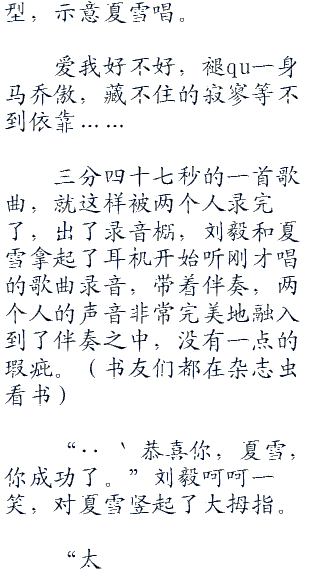 型，示意夏雪唱。
爱我好不好，褪qu一身
马乔傲，藏不住的寂寥等不
到依靠……
三分四十七秒的一首歌
曲，就这样被两个人录完
了，出了录音棚，刘毅和夏
雪拿起了耳机开始听刚才唱
的歌曲录音，带着伴奏，两
个人的声音非常完美地融入
到了伴奏之中，没有一点的
瑕疵。（书友们都在杂志虫
看书）
“‥ ‵恭喜你，夏雪，
你成功了。”刘毅呵呵一
笑，对夏雪竖起了大拇指。
“太